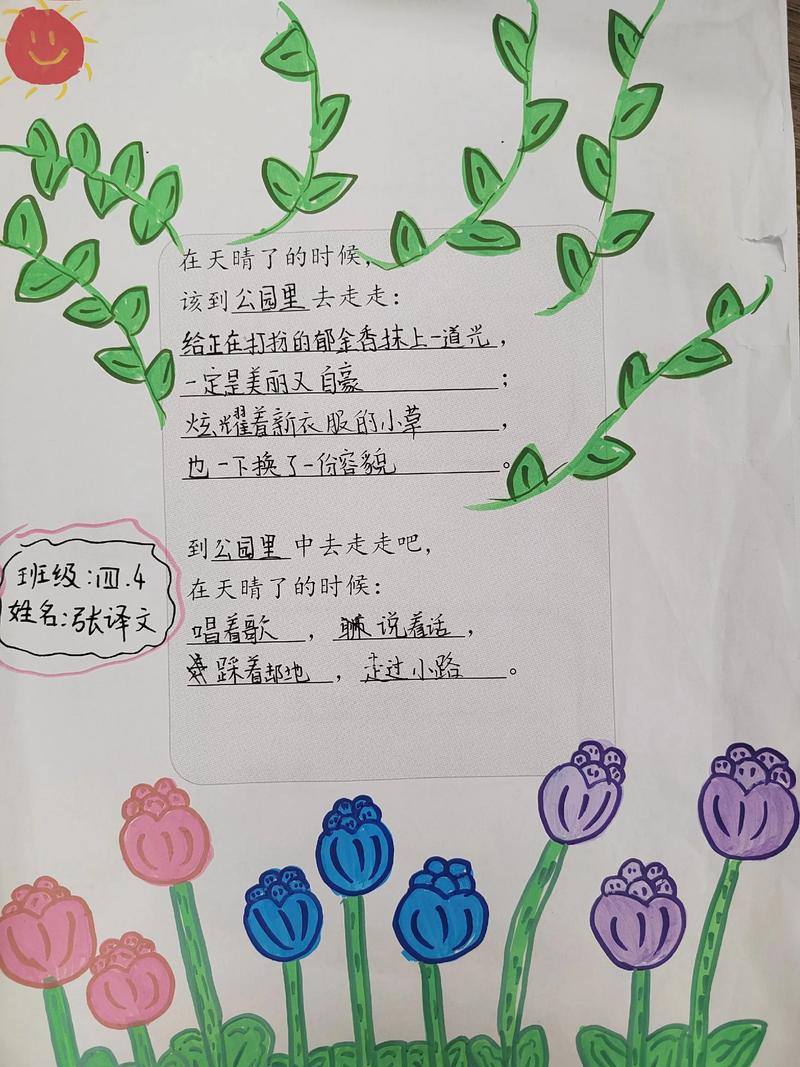 在天晴了的时候，
该到公园里去走走：
给正在打扮的郁金香抹上一道光，
一定是美丽又自豪；
炫耀着新衣服的小草，
也一下换了一份容貌。
到公园里中去走走吧，
在天晴了的时候：
唱着歌，说着话，
踩着地，走过小路。
班级：四.4
姓名：张译文